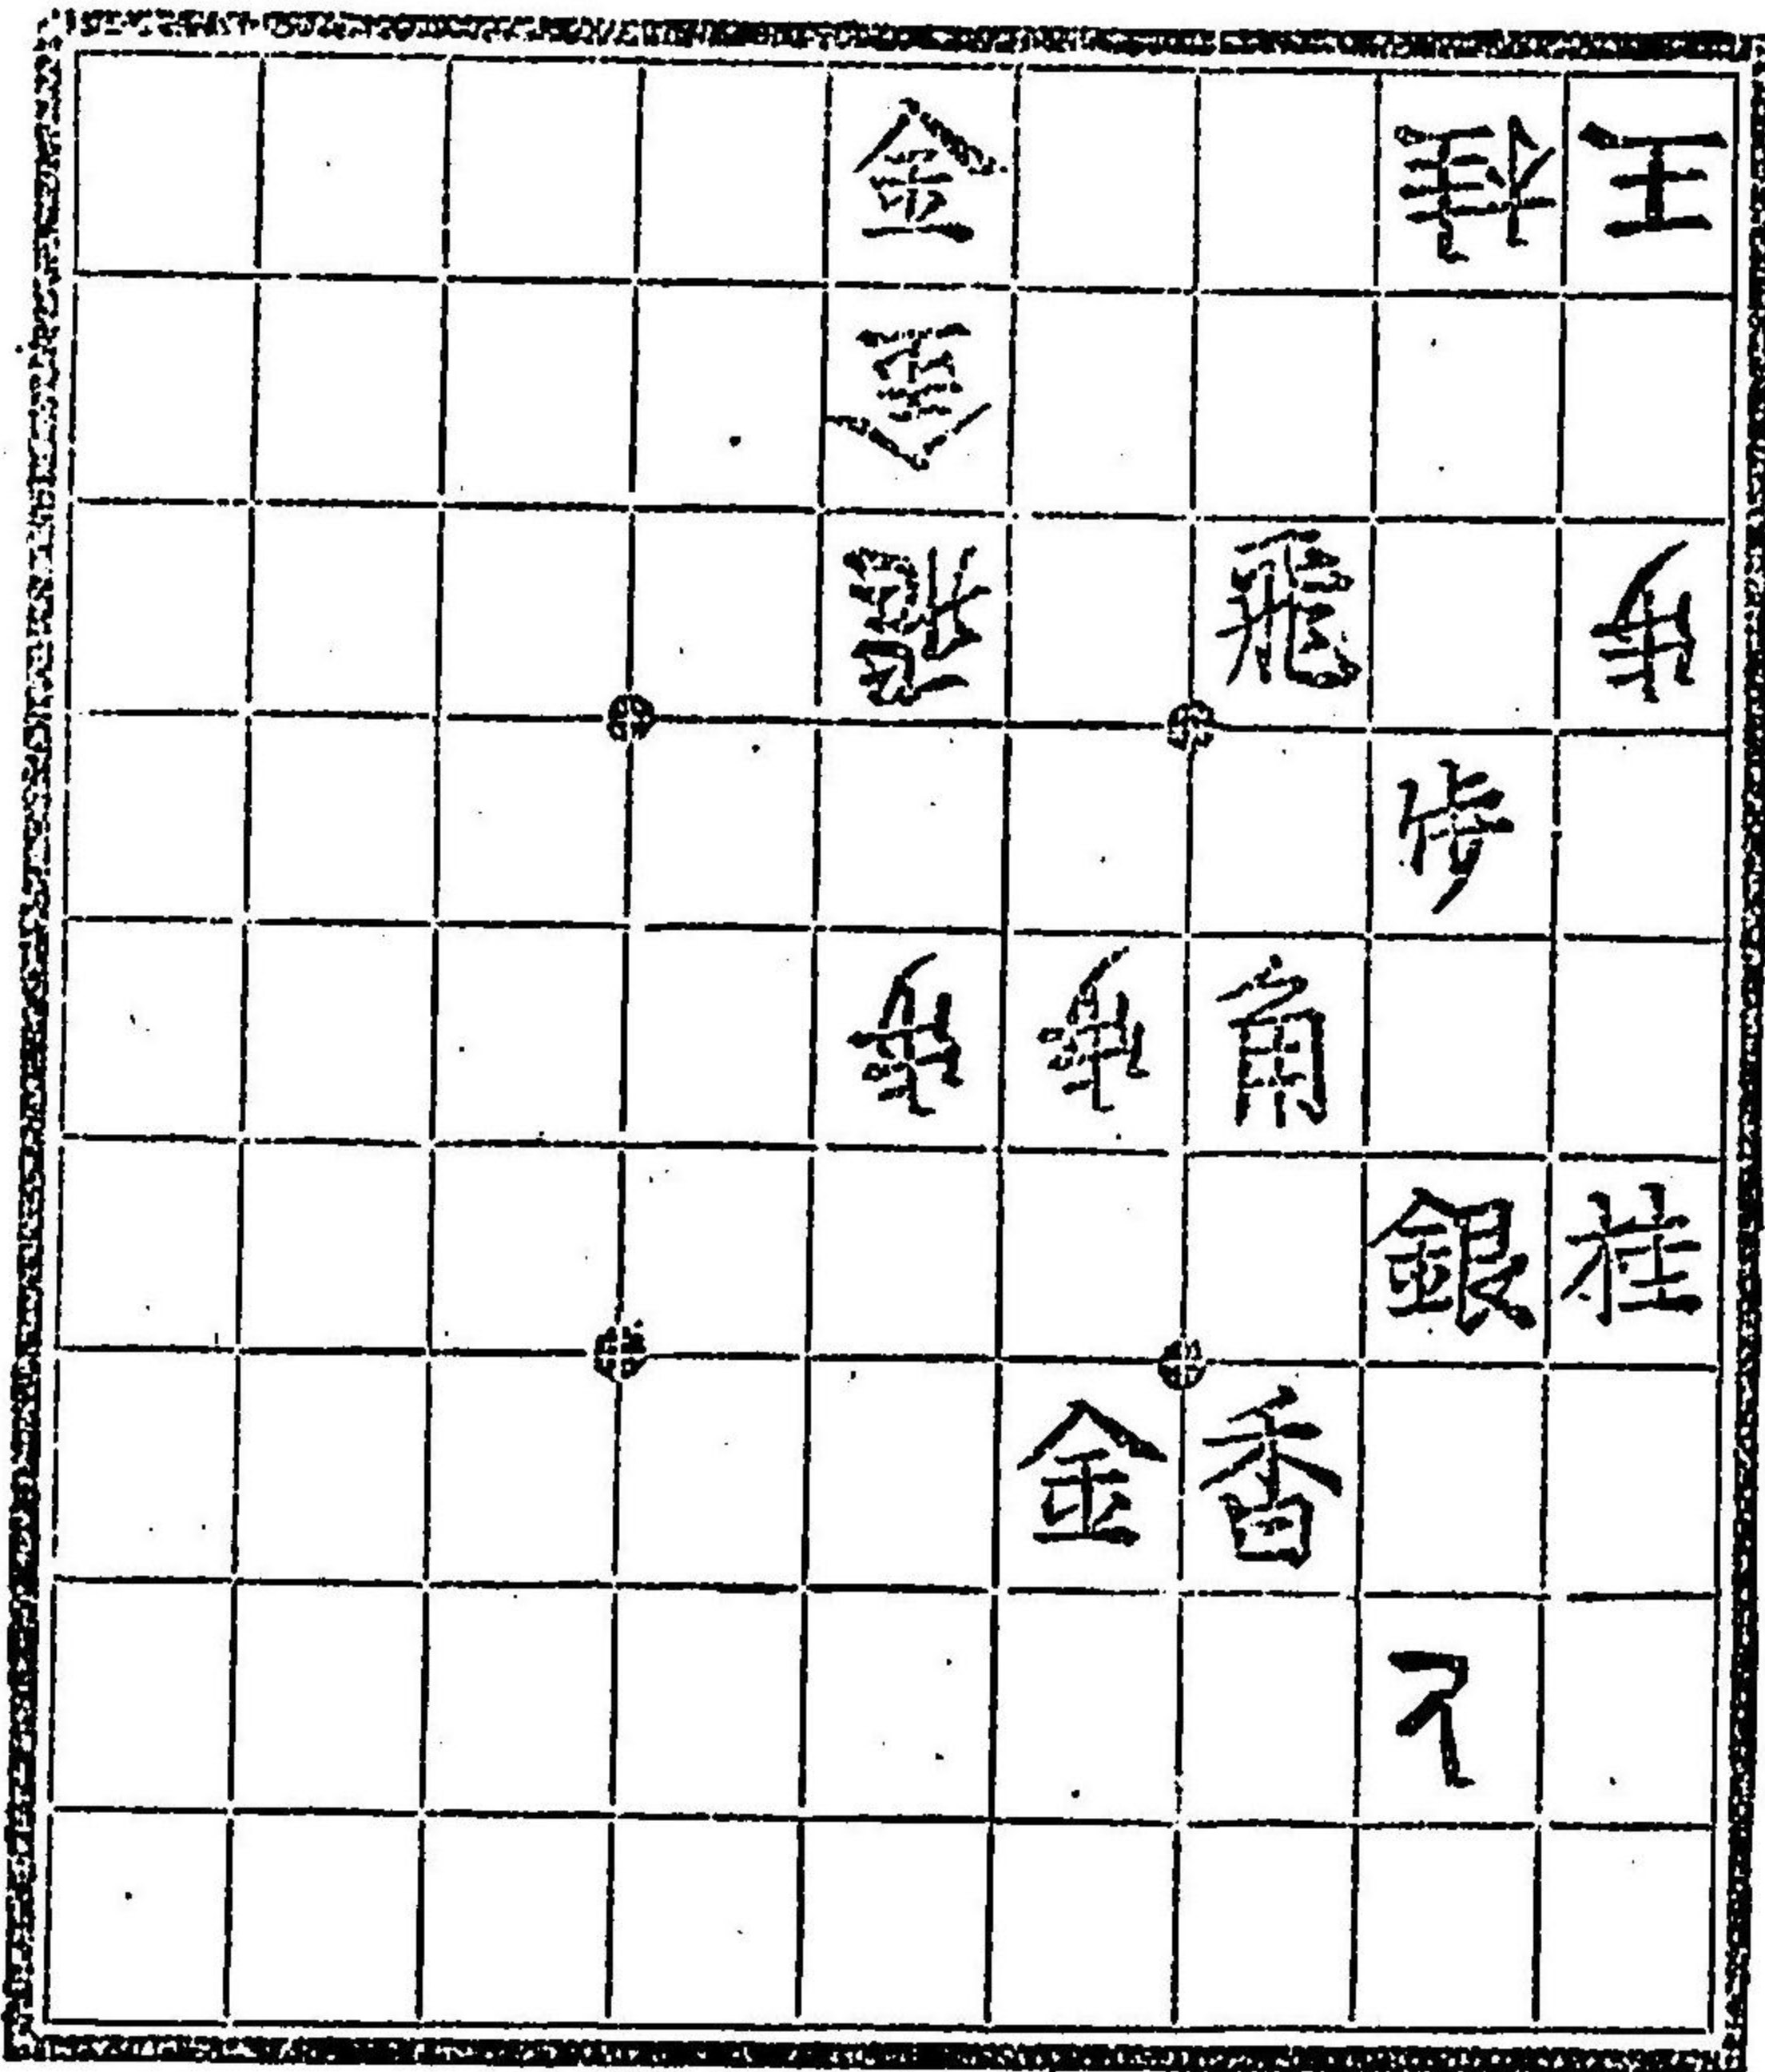 金 桂 王
金
飛 飛 歩
歩
歩 歩 角
銀 桂
金 香
と